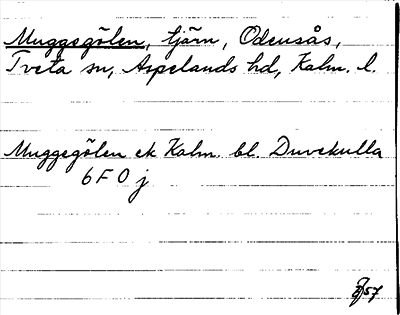 Muggegölen, tjärn, Odensås,
Tveta sn, Aspelands hd, Kalm. l.
Muggegölen ek Kalm. bl. Duvekulla
6F 0 j
57